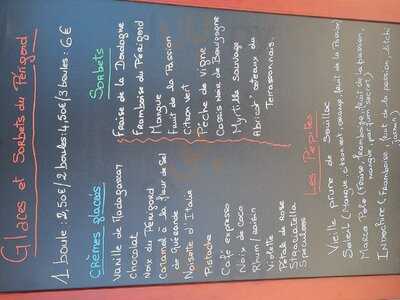 Glaces et Sorbets du Périgord
1 boule : 2,50€ / 2 boules : 4,50€ / 3 boules : 6€
Crèmes glacées
Vanille de Madagascar
Chocolat
Noix du Périgord
Caramel à la fleur de Sel
de Guérande
Noisette d'Italie
Pistache
Café expresso
Noix de coco
Rhum / raisin
Violette
Pétale de rose
Stracciatella
Speculoos
Sorbets
Fraise de la Dordogne
Framboise du Périgord
Mangue
Fruit de la Passion
Citron vert
Pêche de Vigne
Cassis Noir de Bourgogne
Myrtille Sauvage
Abricot coteaux du
Terrassonnais.
Les Pépites
Vieille prune de Souillac
Soleil (Mangue, citron vert, orange, fruit de la Passion)
Marco Polo (Fraise, framboise, fruit de la passion,
mangue, parfum secret)
(Framboise, fruit de la passion, litchi
jasmin)